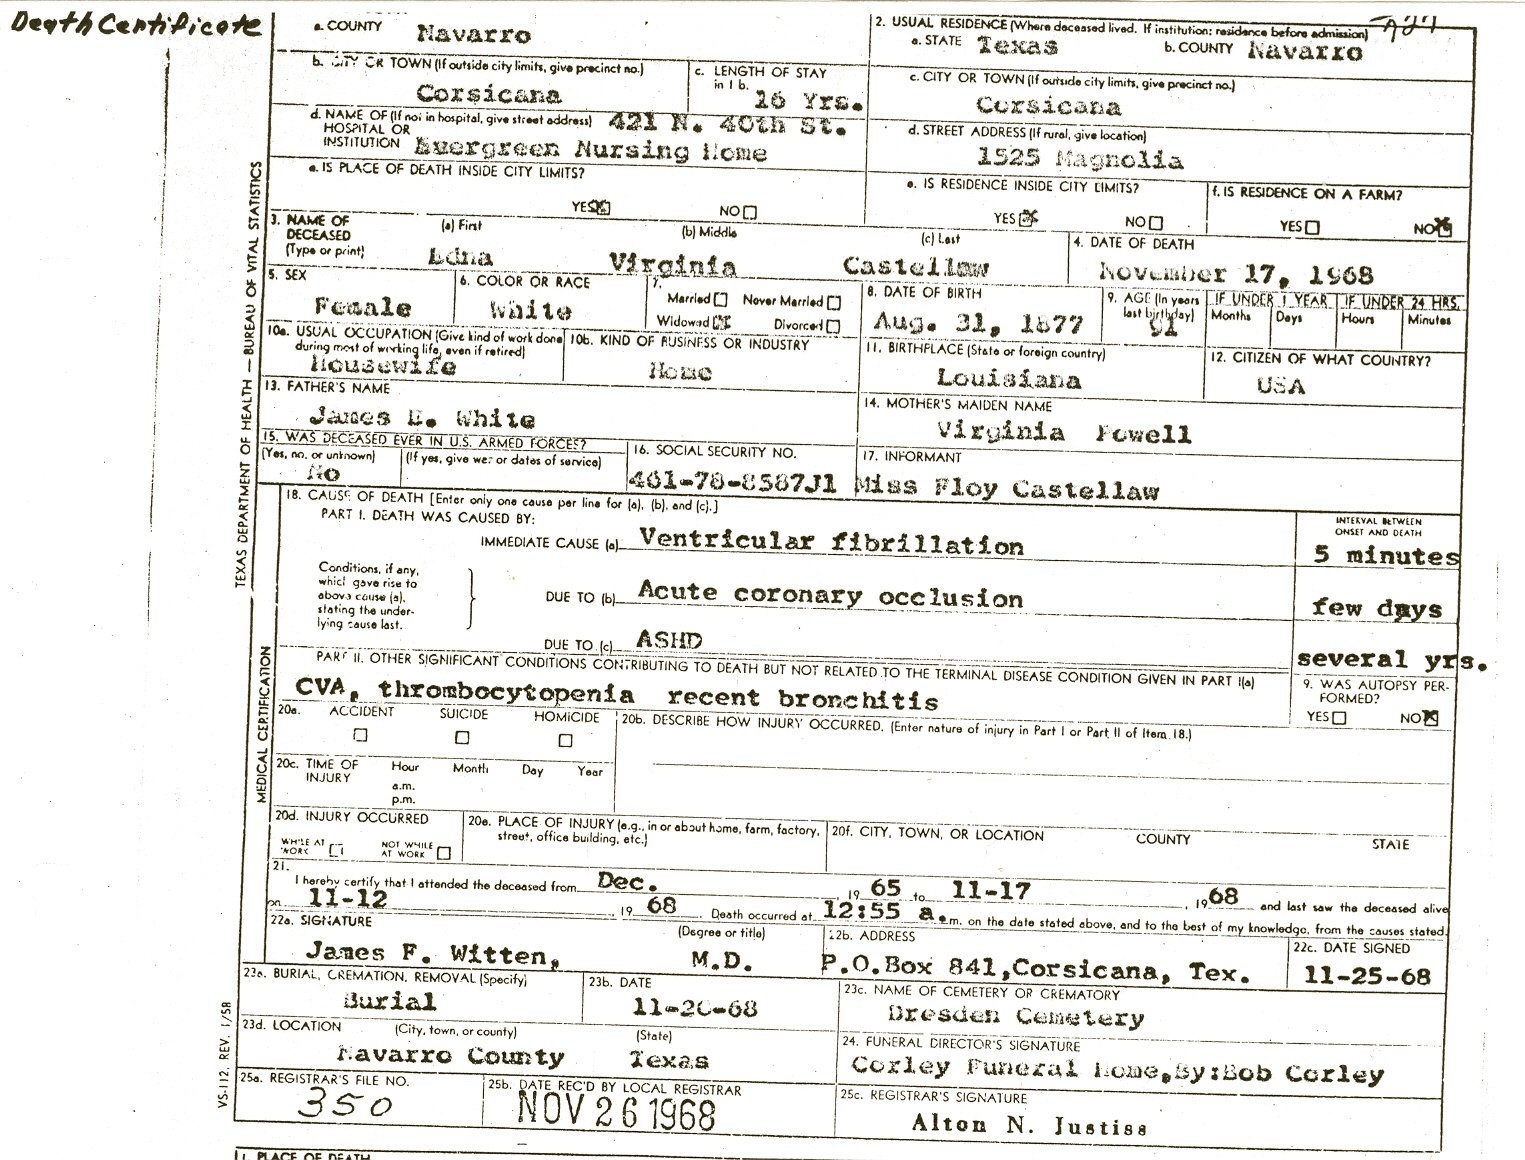 Death Certificate
a. COUNTY Navarro
2. USUAL RESIDENCE (Where deceased lived. If institution: residence before admission)
a. STATE Texas b. COUNTY Navarro
b. CITY OR TOWN (If outside city limits, give precinct no.) Corsicana
c. LENGTH OF STAY in 1 b. 16 Yrs.
c. CITY OR TOWN (If outside city limits, give precinct no.) Corsicana
d. NAME OF (If not in hospital, give street address) 421 N. 40th St.
HOSPITAL OR
INSTITUTION Evergreen Nursing Home
d. STREET ADDRESS (If rural, give location)
1525 Magnolia
e. IS PLACE OF DEATH INSIDE CITY LIMITS?
YES NO
e. IS RESIDENCE INSIDE CITY LIMITS?
YES NO
f. IS RESIDENCE ON A FARM?
YES NO
3. NAME OF DECEASED (Type or print)
(a) First (b) Middle (c) Last
Edna Virginia Castellaw
4. DATE OF DEATH
November 17, 1968
5. SEX
Female
6. COLOR OR RACE
White
7.
Married Never Married
Widowed Divorced
8. DATE OF BIRTH
Aug. 31, 1877
9. AGE (In years last birthday)
91
IF UNDER 1 YEAR IF UNDER 24 HRS.
Months Days Hours Minutes
10a. USUAL OCCUPATION (Give kind of work done
during most of working life, even if retired)
Housewife
10b. KIND OF BUSINESS OR INDUSTRY
Home
11. BIRTHPLACE (State or foreign country)
Louisiana
12. CITIZEN OF WHAT COUNTRY?
USA
13. FATHER'S NAME
James E. White
14. MOTHER'S MAIDEN NAME
Virginia Powell
15. WAS DECEASED EVER IN U.S. ARMED FORCES?
(Yes, no. or unknown) (If yes, give war or dates of service)
No
16. SOCIAL SECURITY NO.
461-78-8587J1
17. INFORMANT
Miss Floy Castellaw
18. CAUSE OF DEATH [Enter only one cause per line for (a), (b), and (c).]
PART I. DEATH WAS CAUSED BY:
IMMEDIATE CAUSE (a) Ventricular fibrillation
INTERVAL BETWEEN
ONSET AND DEATH
5 minutes
Conditions, if any,
which gave rise to
above cause (a),
stating the under-
lying cause last.
DUE TO (b) Acute coronary occlusion
few days
DUE TO (c) ASHD
several yrs.
PART II. OTHER SIGNIFICANT CONDITIONS CONTRIBUTING TO DEATH BUT NOT RELATED TO THE TERMINAL DISEASE CONDITION GIVEN IN PART I(a)
CVA, thrombocytopenia recent bronchitis
9. WAS AUTOPSY PER-
FORMED?
YES NO
20a. ACCIDENT SUICIDE HOMICIDE
20b. DESCRIBE HOW INJURY OCCURRED. (Enter nature of injury in Part I or Part II of Item 18.)
20c. TIME OF INJURY
Hour Month Day Year
a.m.
p.m.
20d. INJURY OCCURRED
WHILE AT WORK NOT WHILE AT WORK
20e. PLACE OF INJURY (e.g., in or about home, farm, factory,
street, office building, etc.)
20f. CITY, TOWN, OR LOCATION COUNTY STATE
21.
I hereby certify that I attended the deceased from Dec. , 19 65 to 11-17 , 19 68 and last saw the deceased alive
on 11-12 , 19 68 Death occurred at 12:55 a.m. on the date stated above, and to the best of my knowledge, from the causes stated.
22a. SIGNATURE (Degree or title)
James F. Witten, M.D.
22b. ADDRESS
P.O.Box 841,Corsicana, Tex.
22c. DATE SIGNED
11-25-68
23a. BURIAL, CREMATION, REMOVAL (Specify)
Burial
23b. DATE
11-20-68
23c. NAME OF CEMETERY OR CREMATORY
Dresden Cemetery
23d. LOCATION (City, town, or county) (State)
Navarro County Texas
24. FUNERAL DIRECTOR'S SIGNATURE
Corley Funeral Home,By:Bob Corley
25a. REGISTRAR'S FILE NO.
350
25b. DATE REC'D BY LOCAL REGISTRAR
NOV 26 1968
25c. REGISTRAR'S SIGNATURE
Alton N. Justiss
TEXAS DEPARTMENT OF HEALTH — BUREAU OF VITAL STATISTICS
MEDICAL CERTIFICATION
VS-112, REV. 1/58
1. PLACE OF DEATH